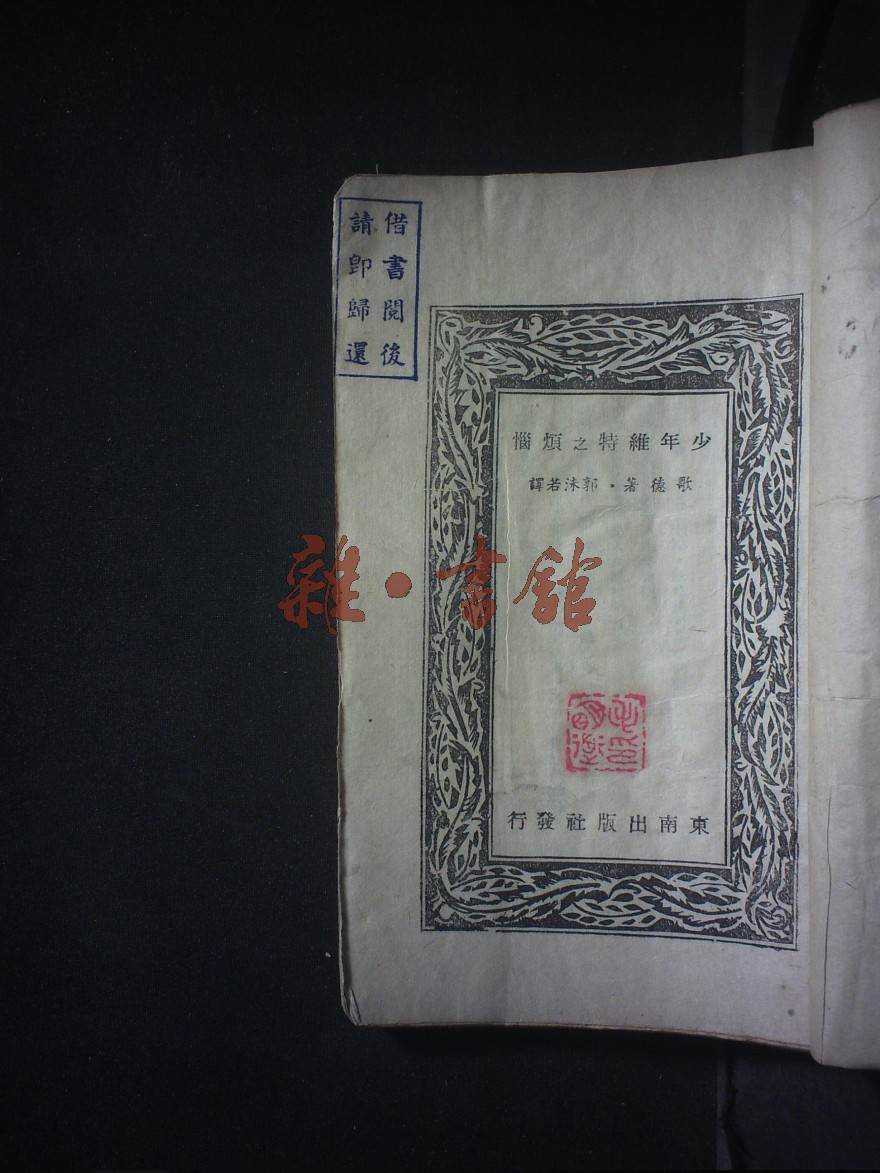 借書閱後
請卽歸還
少年維特之煩惱
歌德著・郭沫若譯
雜・書館
東南出版社發行